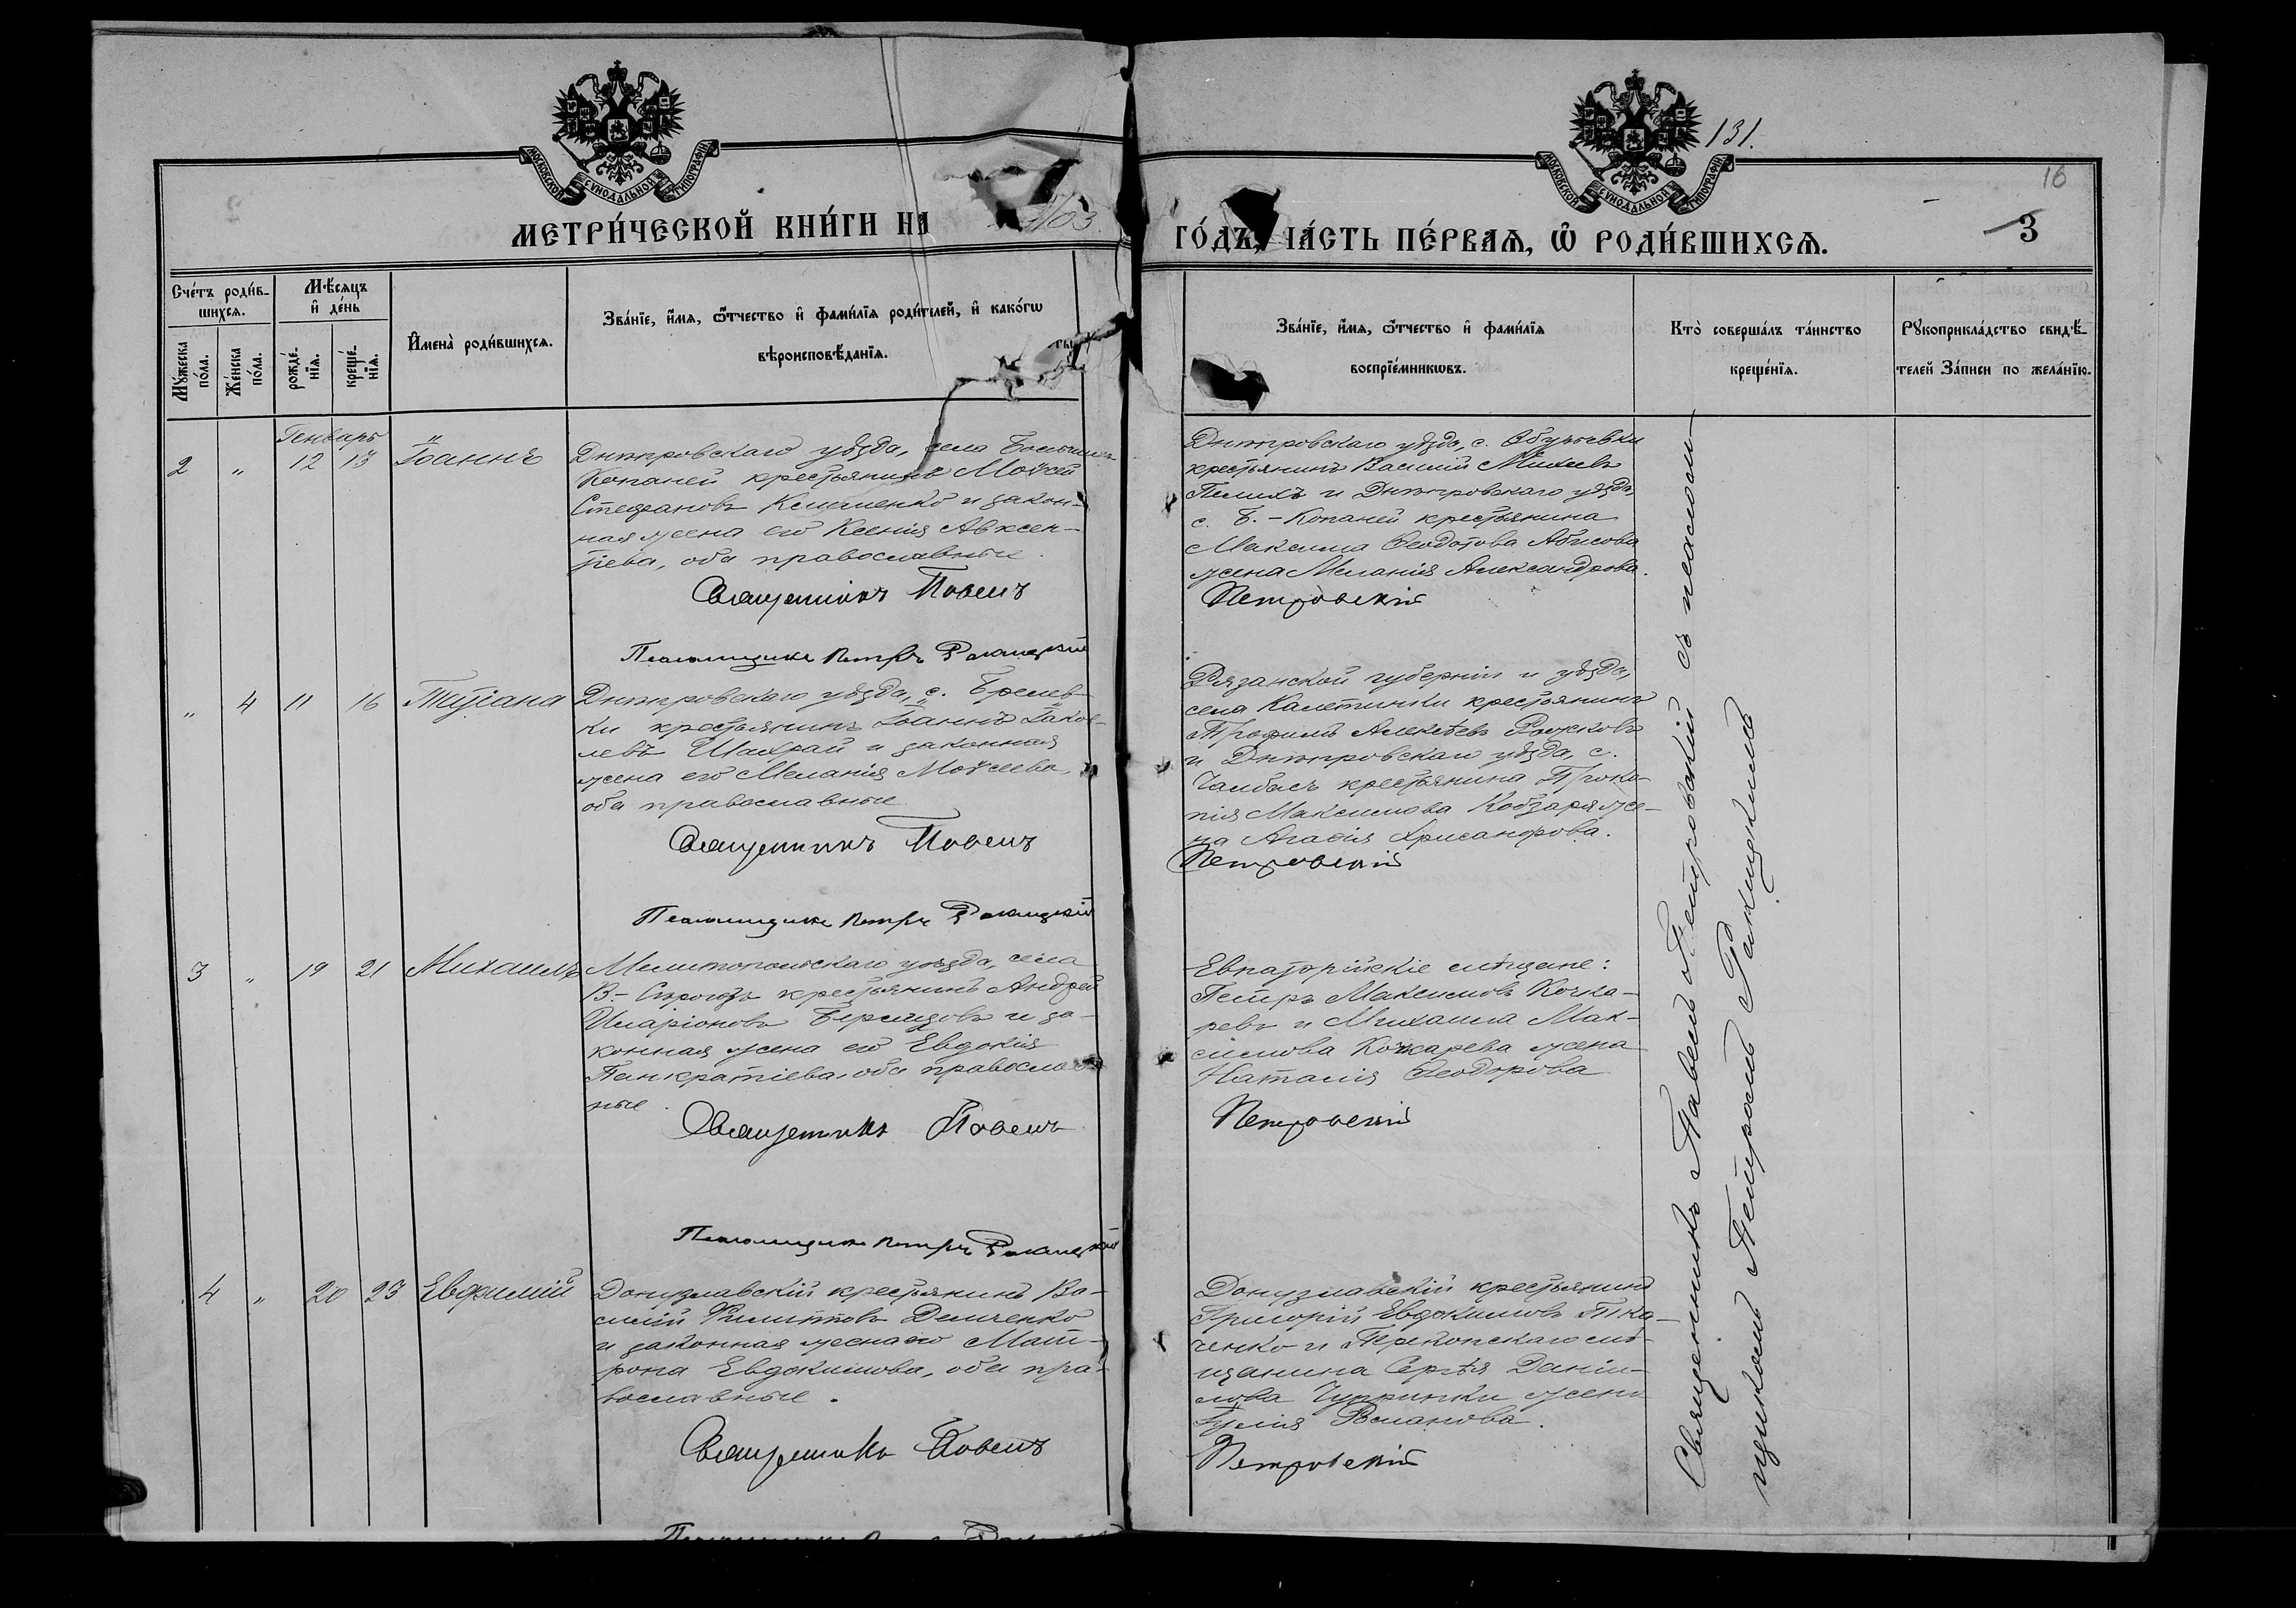 131.
16
МОСКОВСКОЙ СѴНОДАЛЬНОЙ ТИПОГРАФІИ
МОСКОВСКОЙ СѴНОДАЛЬНОЙ ТИПОГРАФІИ
МЕТРИ́ЧЕСКОЙ КНИ́ГИ НА
ГО́ДЪ, ЧА́СТЬ ПЕ́РВАЯ, Ѡ РОДИ́ВШИХСЯ.
3
Сче́тъ роди́в-
шихся.
Мѣ́сяцъ
и де́нь
Му́жеска
по́ла.
Же́нска
по́ла.
рожде́-
нїя.
креще́-
нїя.
Имена̀ роди́вшихся.
Зва́нїе, и́мя, ѻ́тчество и фами́лїя роди́телей, и како́гѡ
вѣроисповѣ́данїя.
Зва́нїе, и́мя, ѻ́тчество и фами́лїя
воспрїе́мникѡвъ.
Кто̀ соверша́лъ та́инство
креще́нїя.
Рꙋкоприкла́дство свидѣ́-
телей за́писи по жела́нїю.
Генварь
2
"
12
13
Іоаннъ
Днѣпровскаго уѣзда, села Большихъ
Копаней крестьянинъ Моѵсей
Стефановъ Клименко и закон-
ная жена его Ксенія Авксен-
тіева, оба православные.
Священникъ Павелъ
Псаломщикъ Петръ Ракицкій
Днѣпровскаго уѣзда, с.
крестьянинъ Василій Михеевъ
Пелихъ и Днѣпровскаго уѣзда,
с. Б.-Копаней крестьянина
Максима Ѳеодотова Абисова
жена Меланія Александрова.
Петровскій
"
4
11
16
Татіана
Днѣпровскаго уѣзда, с. Брилев-
ки крестьянинъ Іоаннъ Іаков-
левъ Шахрай и законная
жена его Меланія Моѵсеева,
оба православные
Священникъ Павелъ
Псаломщикъ Петръ Ракицкій
Рязанской губерніи и уѣзда,
села крестьянинъ
Трофимъ Алексѣевъ Рожковъ
и Днѣпровскаго уѣзда, с.
Чалбасъ крестьянина Проко-
пія Максимова Кобзаря же-
на Агафія Хрисанфова.
Петровскій
3
"
19
21
Михаилъ
Мелитопольскаго уѣзда, села
В.-Сѣрогозъ крестьянинъ Андрей
Иларіоновъ и за-
конная жена его Евдокія
Панкратіева, оба православ-
ные.
Священникъ Павелъ
Псаломщикъ Петръ Ракицкій
Евпаторійскіе мѣщане:
Петръ Максимовъ Кочка-
ревъ и Михаила Мак-
симова Кочкарева жена
Наталія Ѳеодорова
Петровскій
4
"
20
23
Евфимій
Донузлавскій крестьянинъ Ва-
силій Филипповъ Демченко
и законная жена его Мат-
рона Евдокимова, оба пра-
вославные.
Священникъ Павелъ
Донузлавскій крестьянинъ
Григорій Евдокимовъ Тка-
ченко и Перекопскаго мѣ-
щанина Сергѣя Даніи-
лова жена
Іулія Романова.
Петровскій
Священникъ Павелъ Петровскій съ псалом-
щикомъ Петромъ Ракицкимъ